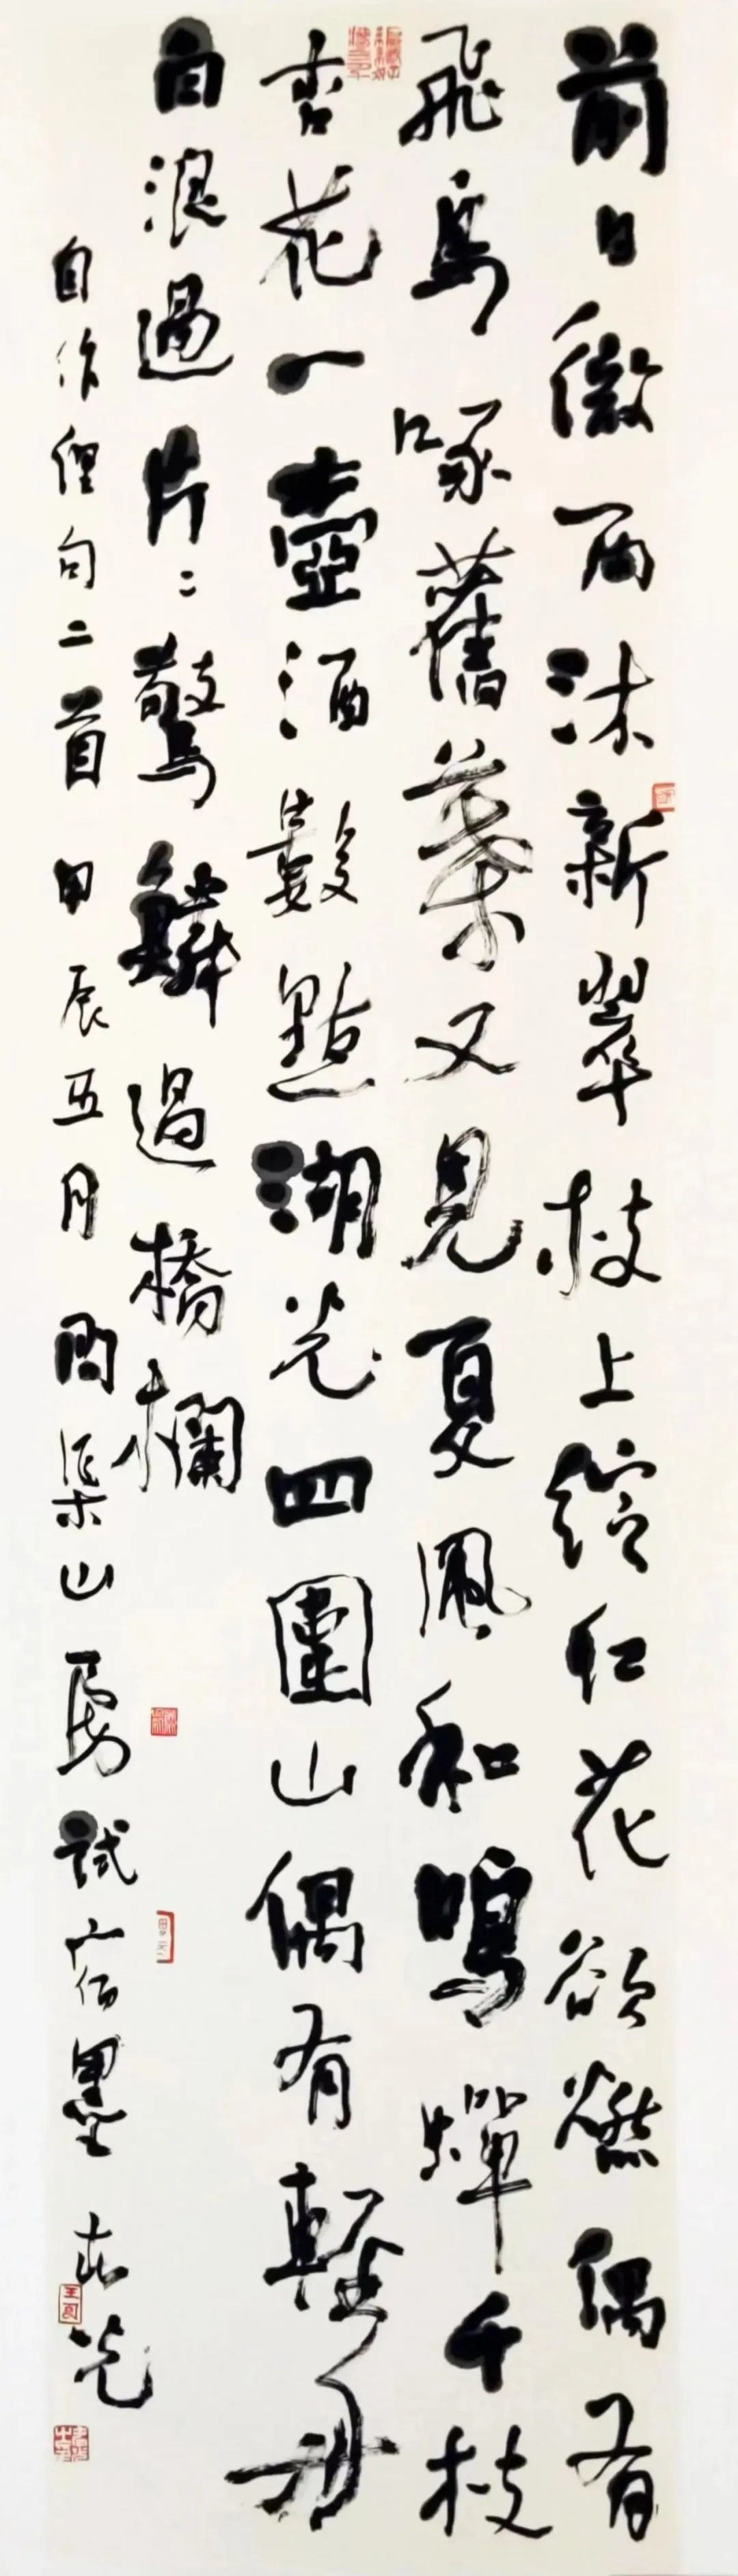 前日微雨沐新翠枝上綻紅花欲燃偶有
飛鳥啄舊葉又見夏風和鳴蟬千枝
杏花一壺酒數點湖光四圍山偶有輕舟
白浪過片〻驚鱗過橋欄
自作俚句二首 甲辰五月 問渠山房試宿墨 志光